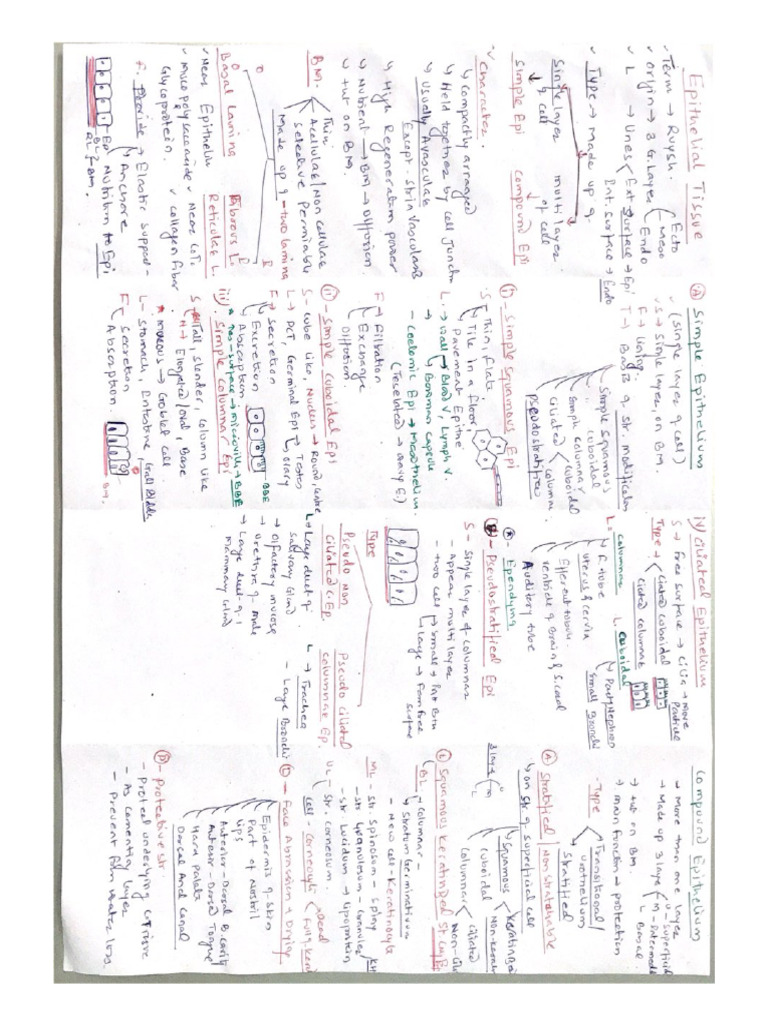 Epithelial Tissue
Term → Ruysh.
origin → 3 G. Layer
Ecto
Meso
Endo
L → Lines
Ext. Surface → Epi
Int. Surface → Endo
Type → made up of.
Single layer
of cell
Simple Epi
multilayer
of cell
compound Epi
Character.
Compactly arranged
Held together by cell Junctn
Usually Avascular
Except. Stria Vascularis
High Regeneration power
Nutrient → BM → Diffusion.
put on BM.
BM.
Thin
Acellular/Non cellular
Selective Permiable
Made up of → two lamina
Basal Lamina
Near Epithelu
Mucopolysaccaride
Glycoprotein.
Fibrous L.
Reticular L.
Near C.T.
collagen fiber
f. Provide → Elastic Support
Anchore
Nutrition to Epi
Epi
BL
RL
BM.
(A) Simple Epithelium
(single layer of cell)
S → Single layer, on BM.
F → Lining.
T → Base of str. modification
Simple squamous
" cuboidal
Simple columnar
Ciliated
cuboidal
columna
Pseudostratified
(i) - Simple Squamous Epi
S. Thin, flate
Tile in a floor
Pavement Epithe
L. → Wall
Blood V, Lymph V.
Bowman capsule
- Coelomic Epi → Mesothelium.
(Tesselated → ovary E)
F → Filtration
Exchange
Diffution.
(ii) - Simple Cuboidal Epi
S - cube like, Nucleus → Round, Centre
L → PCT, Germinal Epi
Testes
ovary
F → Secretion
Excretion
Absorption
BBE
→ Free-surface → microvilli → BBE
(iii) Simple Columnar Epi
S - Tall, slender, column like
N → Elongated/oval, Base
Mucous → Goblet cell
L - stomach, Intestine, Gall Bladder
F → secretion
Absorption.
BM.
iv) Ciliated Epithelium
S → Free surface → cilia → move
Particles
Type →
Ciliated cuboidal
Ciliated columnar
L. columnar
F. tube
Uterus & cervix
Efferent tubule
Ventricle of Brain & S. canal
Auditory tube
Ependyma
L. Cuboidal
Part of Nephron
Small Bronchi
- Pseudostratified Epi
S - Single layer of columnar
- appear multi layer
- two cell
Small → Put BM
Large → from free
surface
Type
Pseudo non
ciliated C. Ep.
L → Large duct of
Salivary Gland
→ olfactory mucosa
→ urethra of male
→ Large duct of
mammary Gland
Pseudo ciliated
columnar Ep.
L → Trachea
- Large Bronchi
Compound Epithelium
→ More than one layer
→ Made up 3 layer
U - Superficial
M - Intermedi
L Basal.
→ put on BM
→ main function → protection
Type
Transitional/
urothelium
stratified
(A) Stratified / Non stretchable
on str. of superficial cell
Squamous
cuboidal
columnar
Keratinized
Non-kerati
Ciliated
Non-Cili
3 layer
(i) Squamous keratinized St. Sq. Epi
BL
columnar
Stratum Germinativum
- New cell - Keratinocyte
ML - Str. Spinosum - Spiny
- str. Granulosum - Granules
- str. Lucidum → lipoprotein
UL - Str. Corneosum.
cell - Corneocyte
Dead
Full of kera
(L) - Face Abrassion & Drying
Epidermis of skin
Part of Nostril
Lips
Anterior-Dorsal B. cavity
Anterior-Dorsal Tongue
Hard palate
Dorsal Anal canal
(P) - Protective str.
- Protect underlying C. Tissue
- As cementing layer
- Prevent from water loss